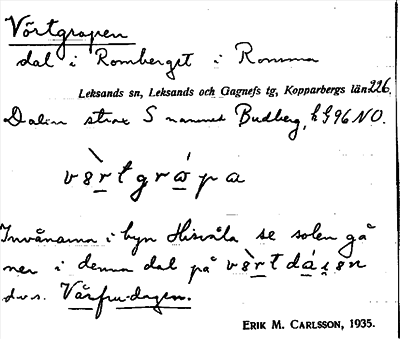 Vörtgropen
dal i Romberget i Romma
Leksands sn, Leksands och Gagnefs tg, Kopparbergs län. 226.
Dalin strax S namnet Budberg, h S 96 NO.
vɞ̀rtgrápa
Invånarna i byn Hisvåla se solen gå
ner i denna dal på vɞ̀rtdásɞn
d.v.s. Vårfru-dagen.
ERIK M. CARLSSON, 1935.